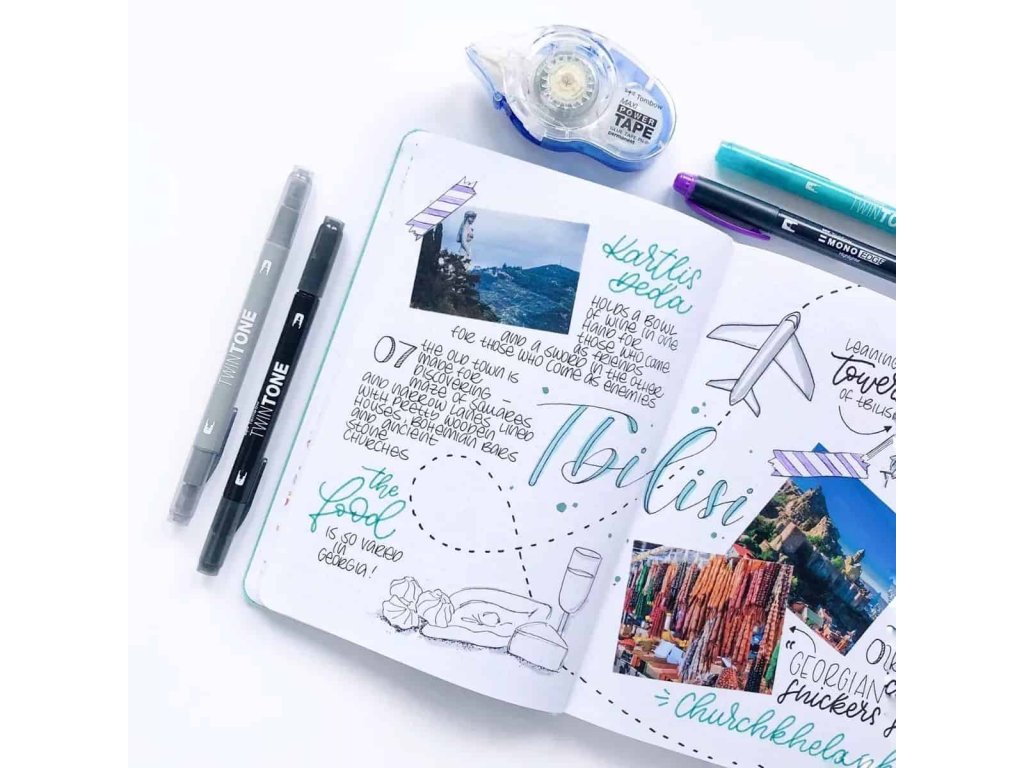 Tombow
MAX!
POWER
TAPE
permanent
TWINTONE
TWINTONE
TWINTONE
MONO EDGE
Highlighter
Kartlis
Deda
HOLDS A BOWL
OF WINE IN ONE
HAND FOR
THOSE WHO COME
AS FRIENDS
AND A SWORD IN THE OTHER
FOR THOSE WHO COME AS ENEMIES
07
THE OLD TOWN IS
MADE FOR
DISCOVERING –
MAZE OF SQUARES
AND NARROW LANES LINED
WITH PRETTY WOODEN
HOUSES, BOHEMIAN BARS
AND ANCIENT
STONE
CHURCHES
the
food
IS SO VARIED
IN
GEORGIA!
Tbilisi
LEANING
Tower
OF TBILISI
"GEORGIAN
Snickers